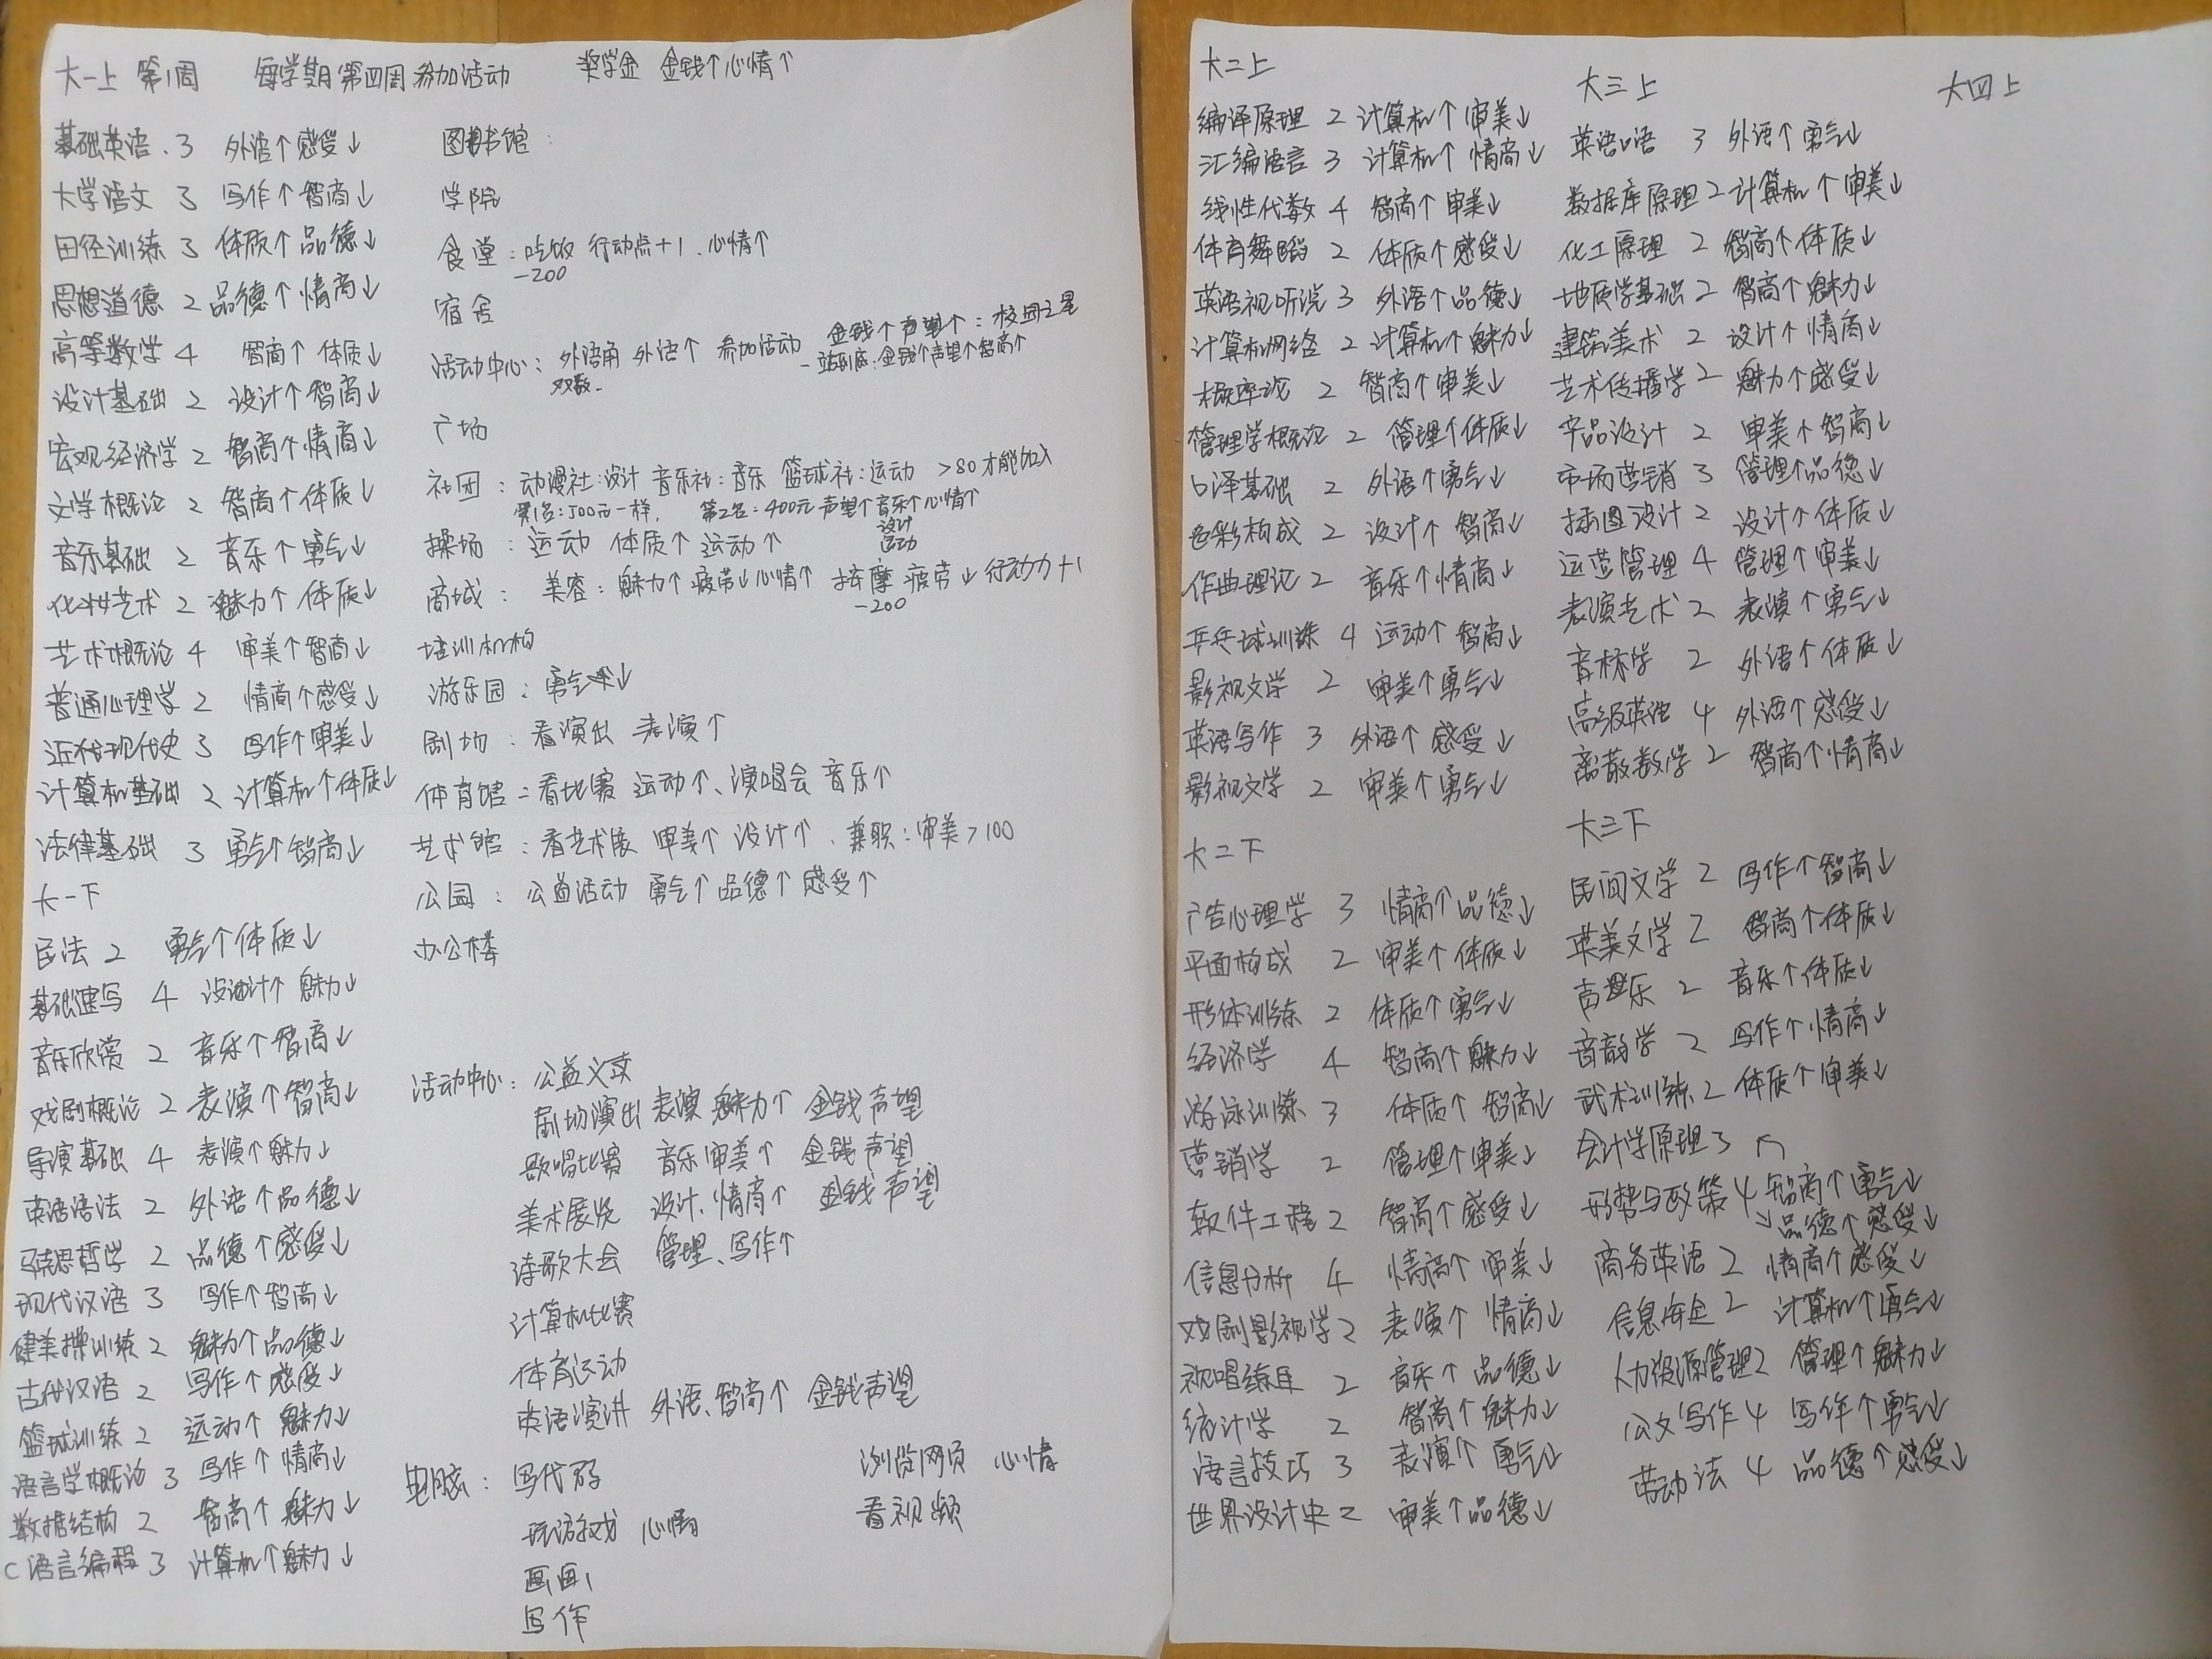 大一上 第1周 每学期第四周参加活动 奖学金 金钱↑心情↑
基础英语 3 外语↑感受↓
大学语文 3 写作↑智商↓
田径训练 3 体质↑品德↓
思想道德 2 品德↑情商↓
高等数学 4 智商↑体质↓
设计基础 2 设计↑智商↓
宏观经济学 2 智商↑情商↓
文学概论 2 智商↑体质↓
音乐基础 2 音乐↑勇气↓
化妆艺术 2 魅力↑体质↓
艺术概论 4 审美↑智商↓
普通心理学 2 情商↑感受↓
近代现代史 3 写作↑审美↓
计算机基础 2 计算机↑体质↓
法律基础 3 勇气↑智商↓
大一下
民法 2 勇气↑体质↓
基础速写 4 设计↑魅力↓
音乐欣赏 2 音乐↑智商↓
戏剧概论 2 表演↑智商↓
导演基础 4 表演↑魅力↓
英语语法 2 外语↑品德↓
马克思哲学 2 品德↑感受↓
现代汉语 3 写作↑智商↓
健美操训练 2 魅力↑品德↓
古代汉语 2 写作↑感受↓
篮球训练 2 运动↑魅力↓
语言学概论 3 写作↑情商↓
数据结构 2 智商↑魅力↓
C语言编程 3 计算机↑魅力↓
图书馆:
学院
食堂:吃饭 行动点+1、心情↑
-200
宿舍
金钱↑声望↑:校园之星
活动中心:外语角 外语↑ 参加活动 一站到底:金钱↑声望↑智商↑
双数.
广场
社团:动漫社:设计 音乐社:音乐 篮球社:运动 >80才能加入
第1名:500元一样, 第2名:400元声望↑音乐↑心情↑
设计
运动
操场:运动 体质↑运动↑
商城:美容:魅力↑疲劳↓心情↑ 按摩 疲劳↓行动力+1
-200
培训机构
游乐园:勇气↓
剧场:看演出 表演↑
体育馆:看比赛 运动↑、演唱会 音乐↑
艺术馆:看艺术展 审美↑设计↑、兼职:审美>100
公园:公益活动 勇气↑品德↑感受↑
办公楼
活动中心:公益义卖
剧场演出 表演 魅力↑ 金钱声望
歌唱比赛 音乐 审美↑ 金钱声望
美术展览 设计、情商↑ 金钱声望
诗歌大会 管理、写作↑
计算机比赛
体育运动
英语演讲 外语、智商↑ 金钱声望
电脑:写代码 浏览网页 心情
玩游戏 心情 看视频
画画
写作
大二上
编译原理 2 计算机↑审美↓
汇编语言 3 计算机↑情商↓
线性代数 4 智商↑审美↓
体育舞蹈 2 体质↑感受↓
英语视听说 3 外语↑品德↓
计算机网络 2 计算机↑魅力↓
概率论 2 智商↑审美↓
管理学概论 2 管理↑体质↓
口译基础 2 外语↑勇气↓
色彩构成 2 设计↑智商↓
作曲理论 2 音乐↑情商↓
乒乓球训练 4 运动↑智商↓
影视文学 2 审美↑勇气↓
英语写作 3 外语↑感受↓
影视文学 2 审美↑勇气↓
大二下
广告心理学 3 情商↑品德↓
平面构成 2 审美↑体质↓
形体训练 2 体质↑勇气↓
经济学 4 智商↑魅力↓
游泳训练 3 体质↑智商↓
营销学 2 管理↑审美↓
软件工程 2 智商↑感受↓
信息分析 4 情商↑审美↓
戏剧影视学 2 表演↑情商↓
视唱练耳 2 音乐↑品德↓
统计学 2 智商↑魅力↓
语言技巧 3 表演↑勇气↓
世界设计史 2 审美↑品德↓
大三上
英语口语 3 外语↑勇气↓
数据库原理 2 计算机↑审美↓
化工原理 2 智商↑体质↓
地质学基础 2 智商↑魅力↓
建筑美术 2 设计↑情商↓
艺术传播学 2 魅力↑感受↓
产品设计 2 审美↑智商↓
市场营销 3 管理↑品德↓
插图设计 2 设计↑体质↓
运营管理 4 管理↑审美↓
表演艺术 2 表演↑勇气↓
音标学 2 外语↑体质↓
高级英语 4 外语↑感受↓
离散数学 2 智商↑情商↓
大三下
民间文学 2 写作↑智商↓
英美文学 2 智商↑体质↓
声乐 2 音乐↑体质↓
音韵学 2 写作↑情商↓
武术训练 2 体质↑审美↓
会计学原理 3
形势与政策 4 智商↑勇气↓
品德↑感受↓
商务英语 2 情商↑感受↓
信息安全 2 计算机↑勇气↓
人力资源管理 2 管理↑魅力↓
公文写作 4 写作↑勇气↓
劳动法 4 品德↑感受↓
大四上